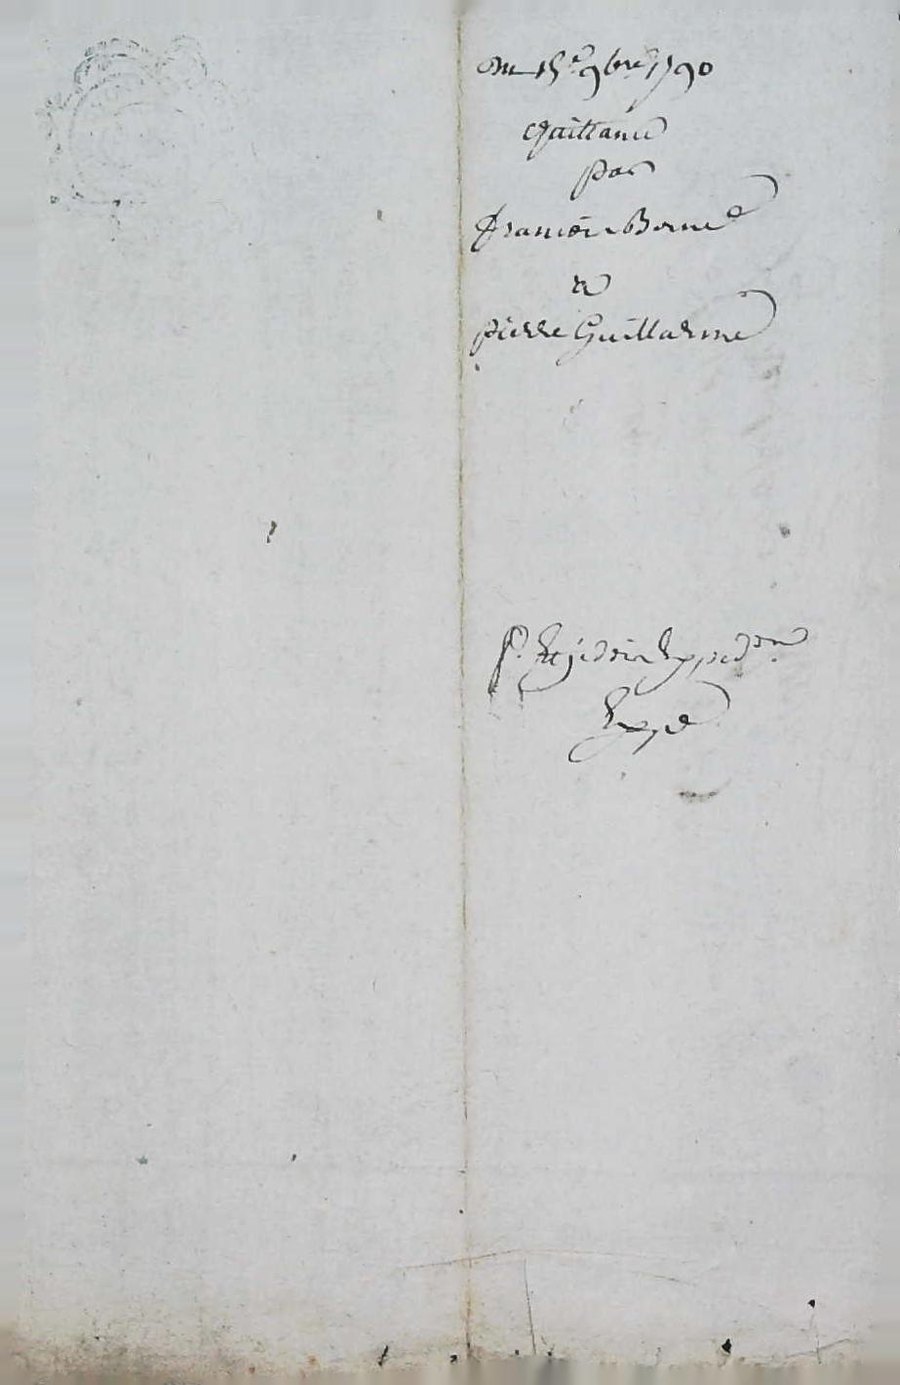 Du 15e 9bre 1790
Quittance
par
francois Borne
a
pierre Guillarme
p.r
Expé